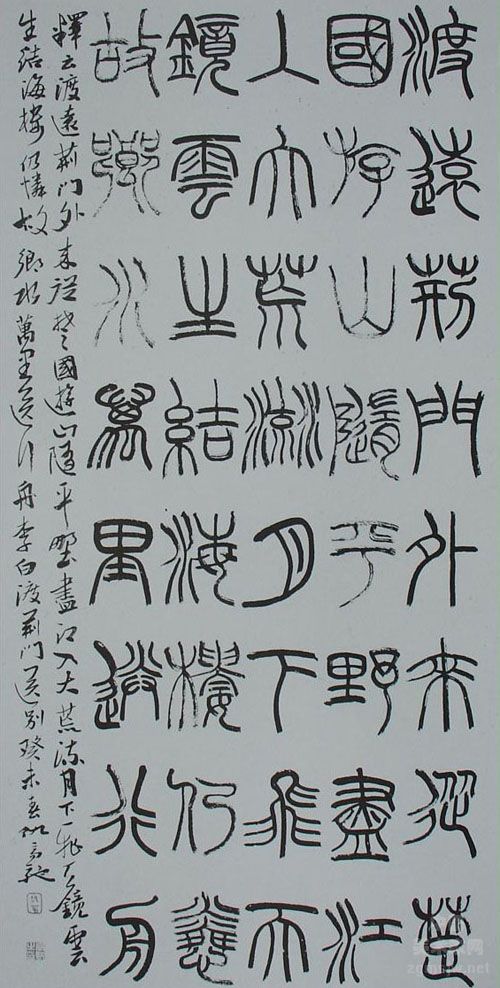 渡遠荊門外來從楚
國游山隨平野盡江
入大荒流月下飛天
鏡雲生結海樓仍憐
故鄉水萬里送行舟
釋文渡遠荊門外來從楚國遊山隨平野盡江入大荒流月下飛天鏡雲
生結海樓仍憐故鄉水萬里送行舟李白渡荊門送別癸未春